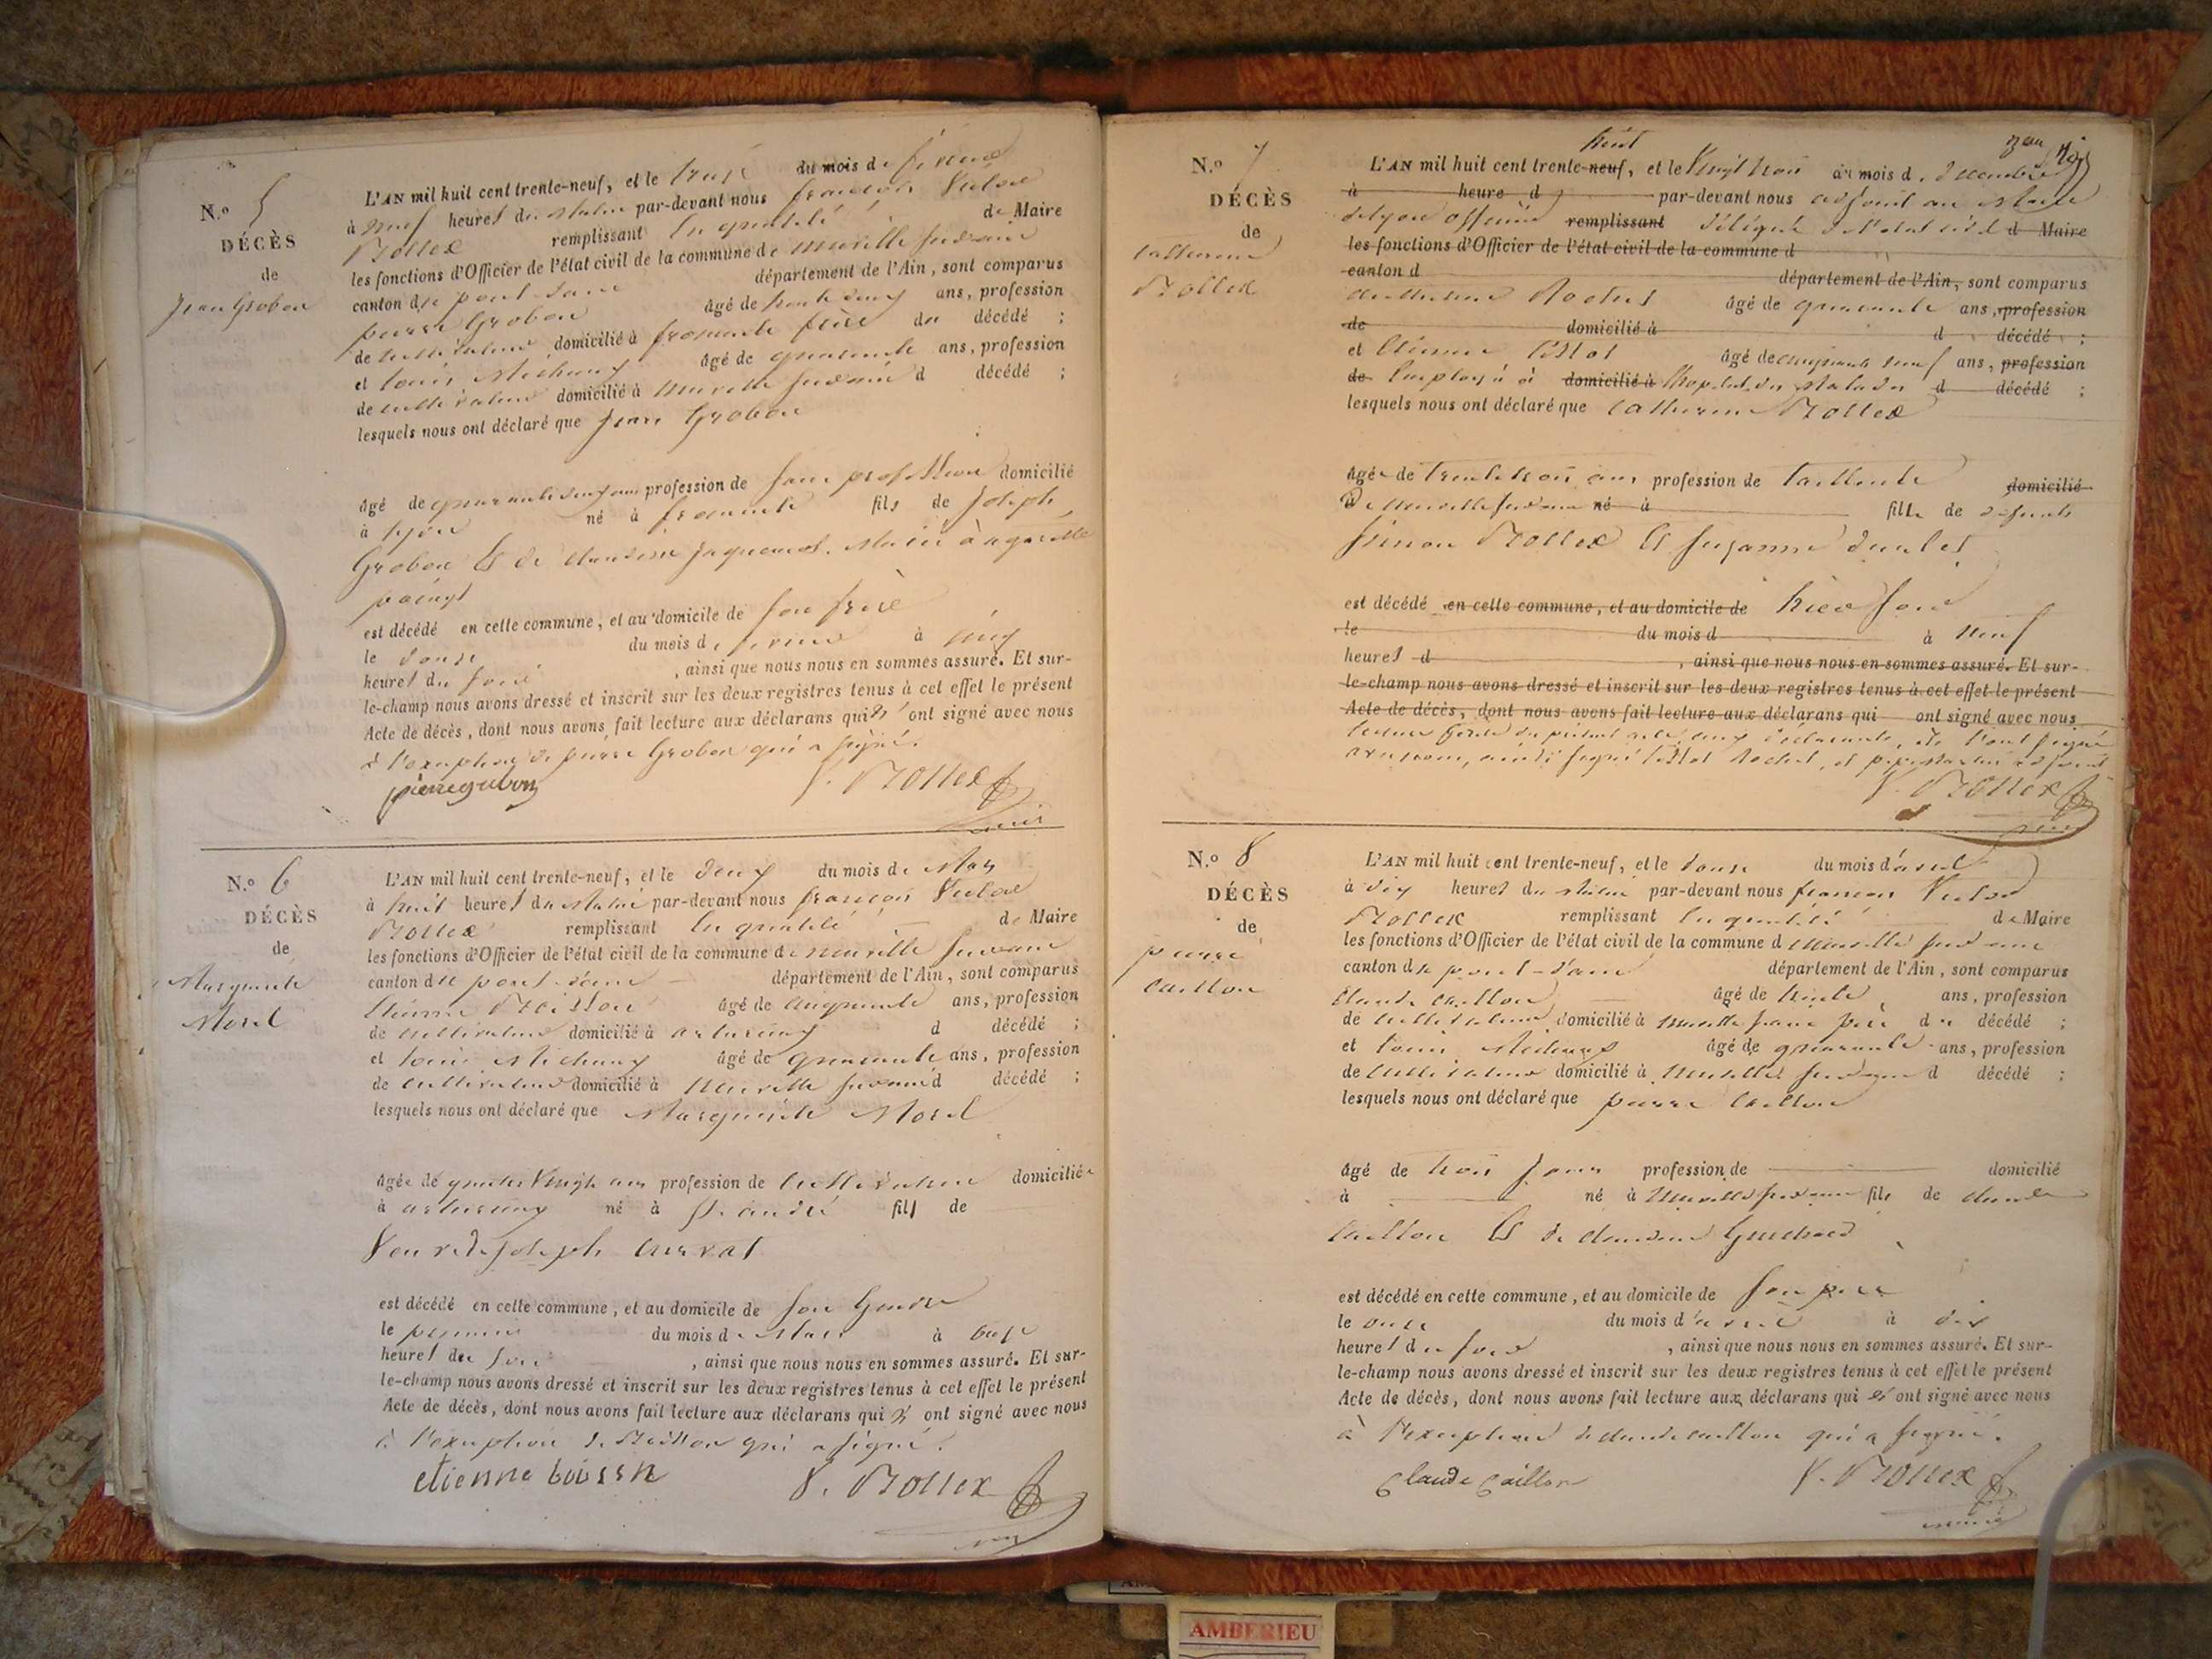 N.º 5
DÉCÈS
de
Jean Grobon
L'AN mil huit cent trente-neuf, et le treize du mois de février
à neuf heures du matin par-devant nous françois Victor
Bollex remplissant en qualité de Maire
les fonctions d'Officier de l'état civil de la commune de neuville sur ain
canton de pont d'ain département de l'Ain, sont comparus
pierre Grobon âgé de ans, profession
de cultivateur domicilié à fromente frère du décédé ;
et Louis Michaux âgé de quarante ans, profession
de cultivateur domicilié à neuville sur ain d décédé ;
lesquels nous ont déclaré que jean Grobon
âgé de quarante deux ans profession de sans profession domicilié
à lyon né à fromente fils de joseph
Grobon et de Claudine
est décédé en cette commune, et au domicile de son frère
le douze du mois de février à
heures du soir, ainsi que nous nous en sommes assuré. Et sur-
le-champ nous avons dressé et inscrit sur les deux registres tenus à cet effet le présent
Acte de décès, dont nous avons fait lecture aux déclarans qui n'ont signé avec nous
à l'exception de pierre Grobon qui a signé.
V. Bollex
maire
N.º 6
DÉCÈS
de
Marguerite
Morel
L'AN mil huit cent trente-neuf, et le deux du mois de Mars
à huit heures du matin par-devant nous françois Victor
Bollex remplissant en qualité de Maire
les fonctions d'Officier de l'état civil de la commune de neuville sur ain
canton de pont d'ain département de l'Ain, sont comparus
Etienne Boisson âgé de cinquante ans, profession
de cultivateur domicilié à d décédé ;
et Louis Michaux âgé de quarante ans, profession
de cultivateur domicilié à Neuville sur ain d décédé ;
lesquels nous ont déclaré que Marguerite Morel
âgée de quatre vingts ans profession de domiciliée
à né à St. andré fils de
Veuve de joseph
est décédé en cette commune, et au domicile de son Gendre
le premier du mois de Mars à onze
heures du soir, ainsi que nous nous en sommes assuré. Et sur-
le-champ nous avons dressé et inscrit sur les deux registres tenus à cet effet le présent
Acte de décès, dont nous avons fait lecture aux déclarans qui n'ont signé avec nous
à l'exception de Boisson qui a signé.
etienne V. Bollex
N.º 7
DÉCÈS
de
Catherine
Bollex
huit
L'AN mil huit cent trente-neuf, et le Vingt trois du mois de décembre
à heure d par-devant nous adjoint au Maire
de lyon officier remplissant délégué de l'état civil d Maire
les fonctions d'Officier de l'état civil de la commune d
canton d département de l'Ain, sont comparus
âgé de quarante ans, profession
de domicilié à d décédé ;
et Etienne âgé de cinquante neuf ans, profession
de Employé à domicilié à l'hopital des Malades d décédé ;
lesquels nous ont déclaré que Catherine Bollex
âgée de trente trois ans profession de tailleuse domicilié
de neuville sur ain né à fille de défunts
simon Bollex et suzanne
est décédé en cette commune, et au domicile de hier soir
le du mois d à neuf
heures d, ainsi que nous nous en sommes assuré. Et sur-
le-champ nous avons dressé et inscrit sur les deux registres tenus à cet effet le présent
Acte de décès, dont nous avons fait lecture aux déclarans qui ont signé avec nous
lecture faite du présent acte aux déclarants, ils l'ont signé
avec nous, ainsi signé
V. Bollex
N.º 8
DÉCÈS
de
pierre
Caillon
L'AN mil huit cent trente-neuf, et le douze du mois d'avril
à dix heures du matin par-devant nous françois Victor
Bollex remplissant en qualité de Maire
les fonctions d'Officier de l'état civil de la commune d neuville sur ain
canton de pont-d'ain département de l'Ain, sont comparus
Claude Caillon âgé de trente ans, profession
de cultivateur domicilié à neuville père du décédé ;
et Louis Michaux âgé de quarante ans, profession
de cultivateur domicilié à neuville sur ain d décédé ;
lesquels nous ont déclaré que pierre Caillon
âgé de trois jours profession de domicilié
à né à Neuville sur ain fils de claude
Caillon et de claudine
est décédé en cette commune, et au domicile de son père
le onze du mois d'avril à dix
heures du soir, ainsi que nous nous en sommes assuré. Et sur-
le-champ nous avons dressé et inscrit sur les deux registres tenus à cet effet le présent
Acte de décès, dont nous avons fait lecture aux déclarans qui n'ont signé avec nous
à l'exception de claude caillon qui a signé.
Claude Caillon V. Bollex
maire
AMBERIEU